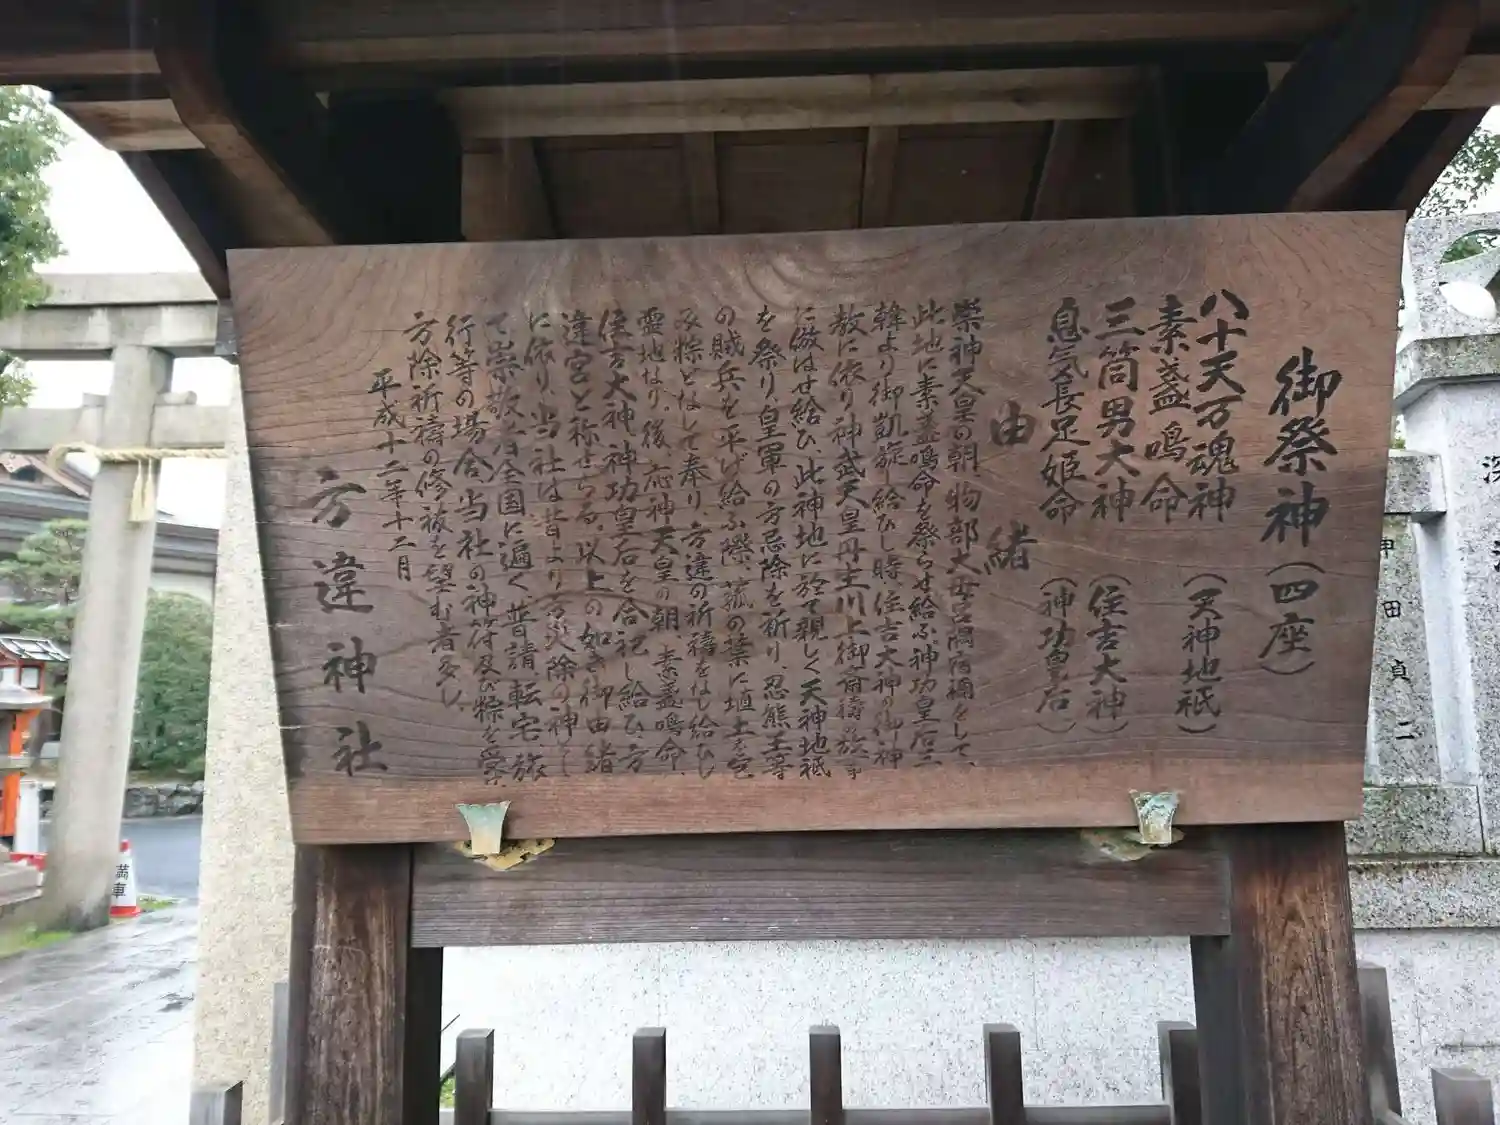 御祭神(四座)
八十天万魂神
素盞鳴命(天神地祇)
三筒男大神(住吉大神)
息気長足姫命(神功皇后)
由緒
崇神天皇の朝、物部大母呂隅宿禰をして、
此地に素盞鳴命を祭らせ給ふ神功皇后三
韓より御凱旋し給ひし時、住吉大神の御神
教に依り神武天皇丹生川上御斎祷の故事
に倣はせ給ひ、此神地に於て親しく天神地祇
を祭り、皇軍の方忌除を祈り、忍熊王等
の賊兵を平げ給ふ際、菰の葉に埴土を包
み粽となして奉り、方違の祈祷をなし給ひし
霊地なり、後、応神天皇の朝、素盞鳴命、
住吉大神、神功皇后を合祀し給ひ方
違宮と称せらる、以上の如き御由緒
に依り、当社は昔より方災除の神とし
て崇敬者全国に遍く普請、転宅、旅
行等の場合当社の神符及び粽を受け
方除祈祷の修祓を望む者多し。
平成十二年十二月
方違神社
甲田貞二
満車